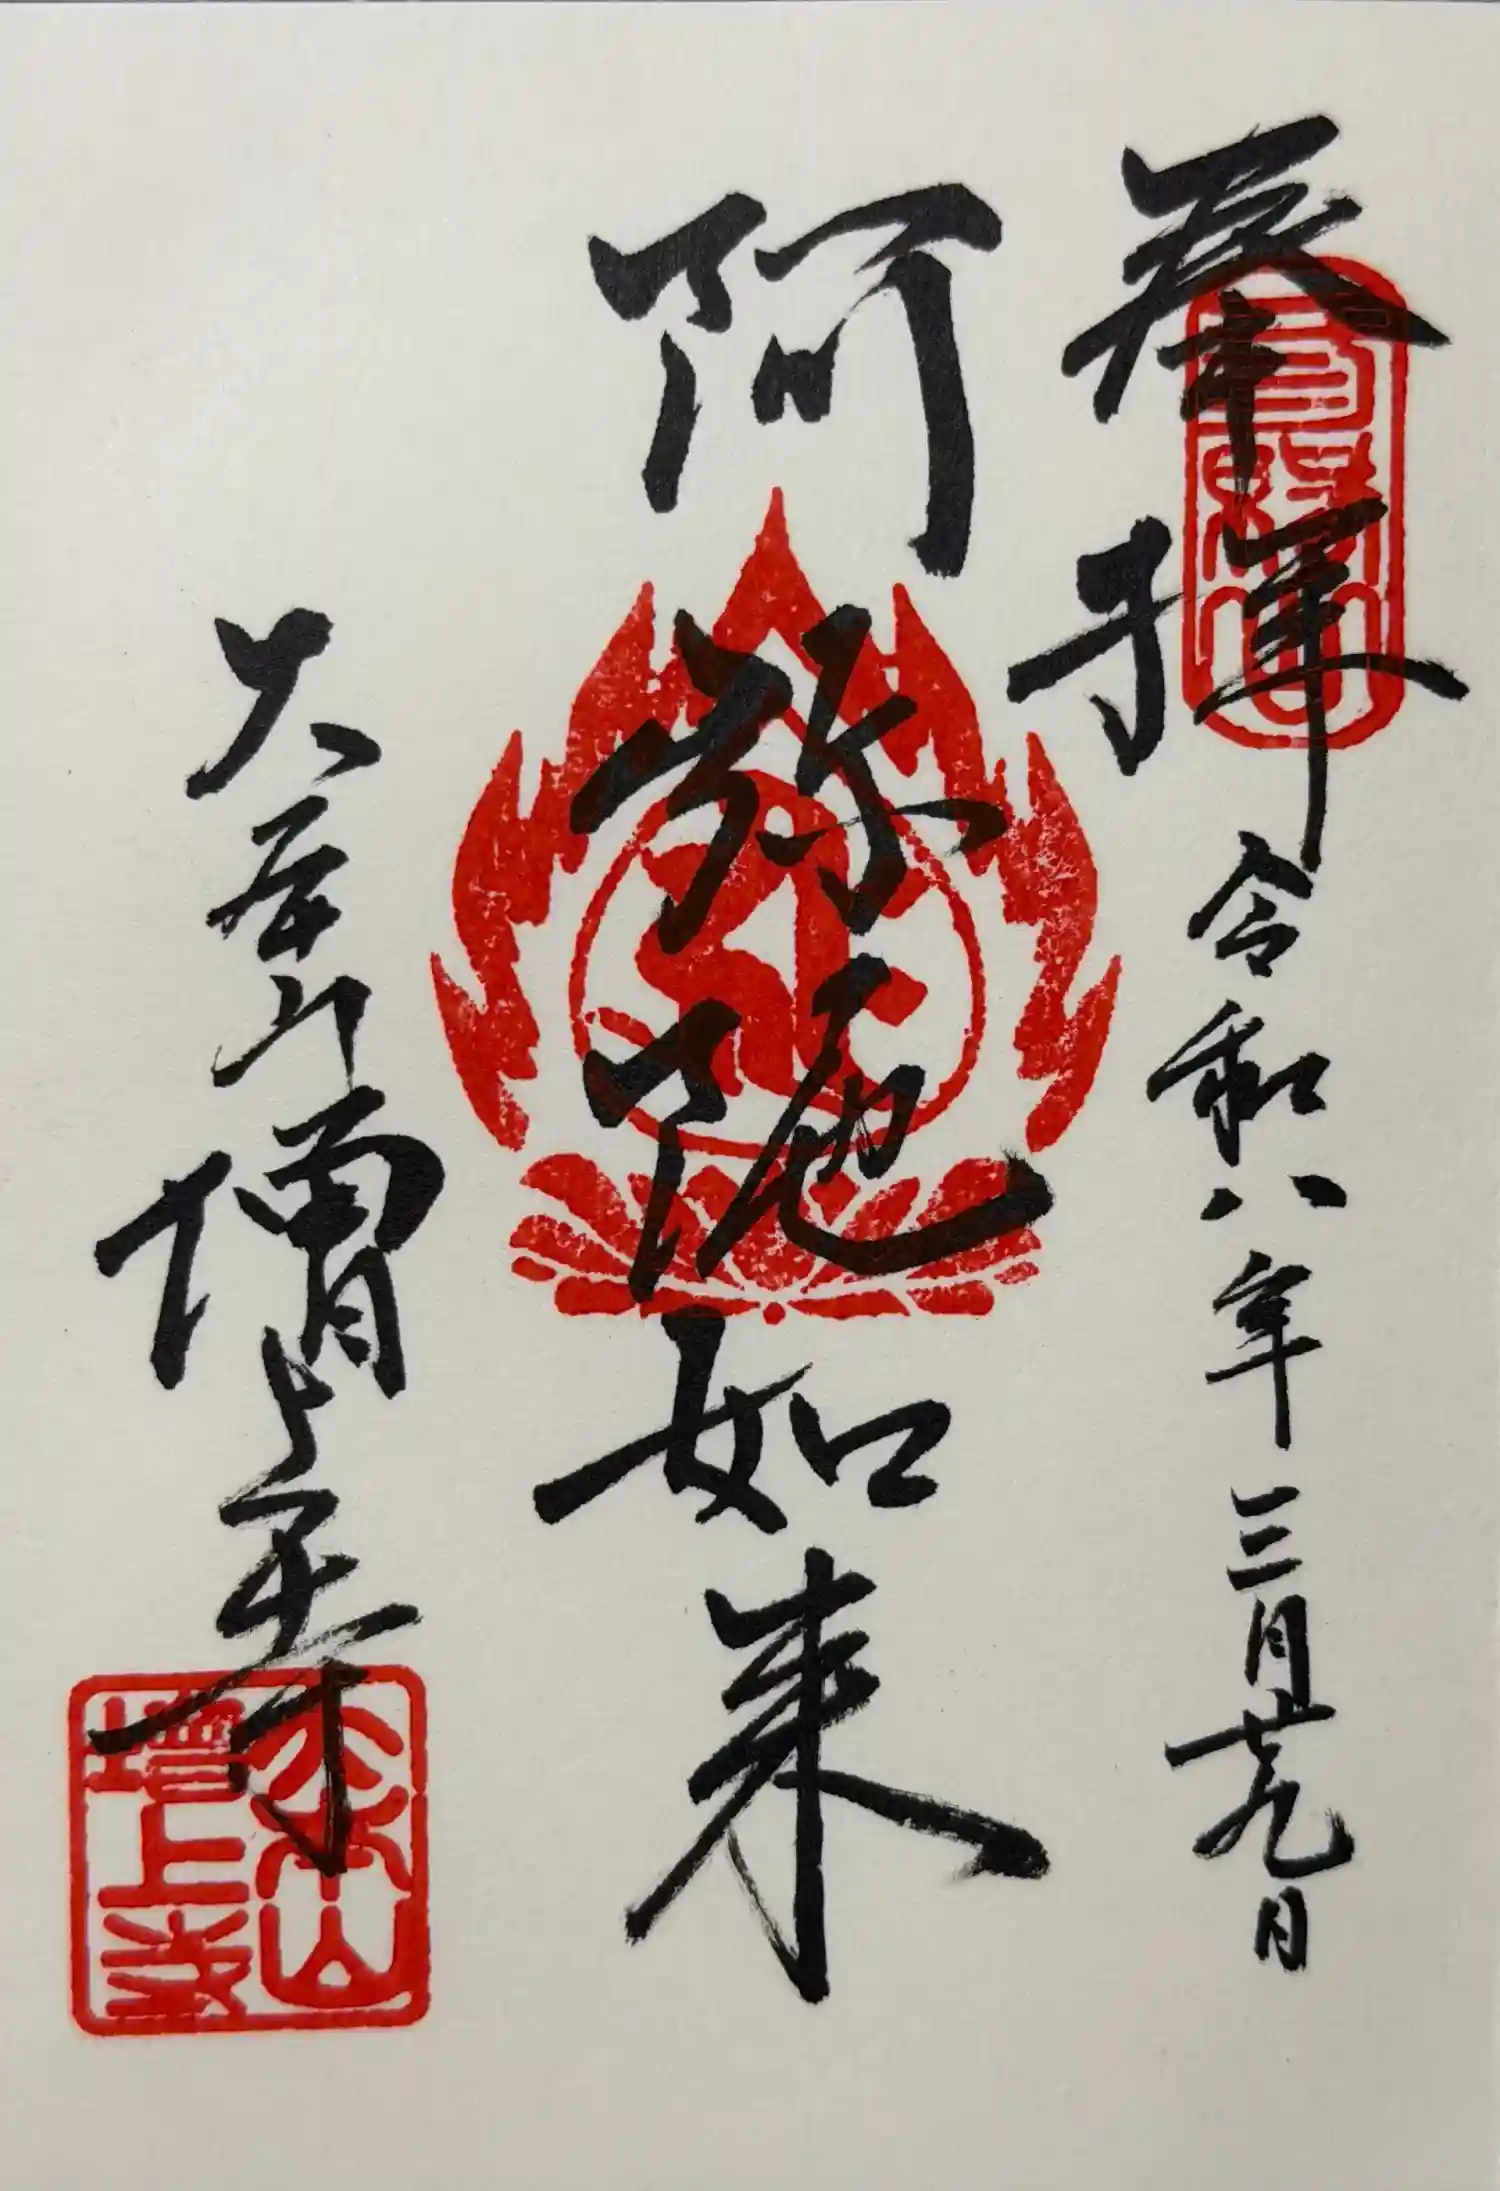 奉拝 令和八年三月廿九日
三縁山
阿弥陀如来
大本山増上寺
大本山
増上寺